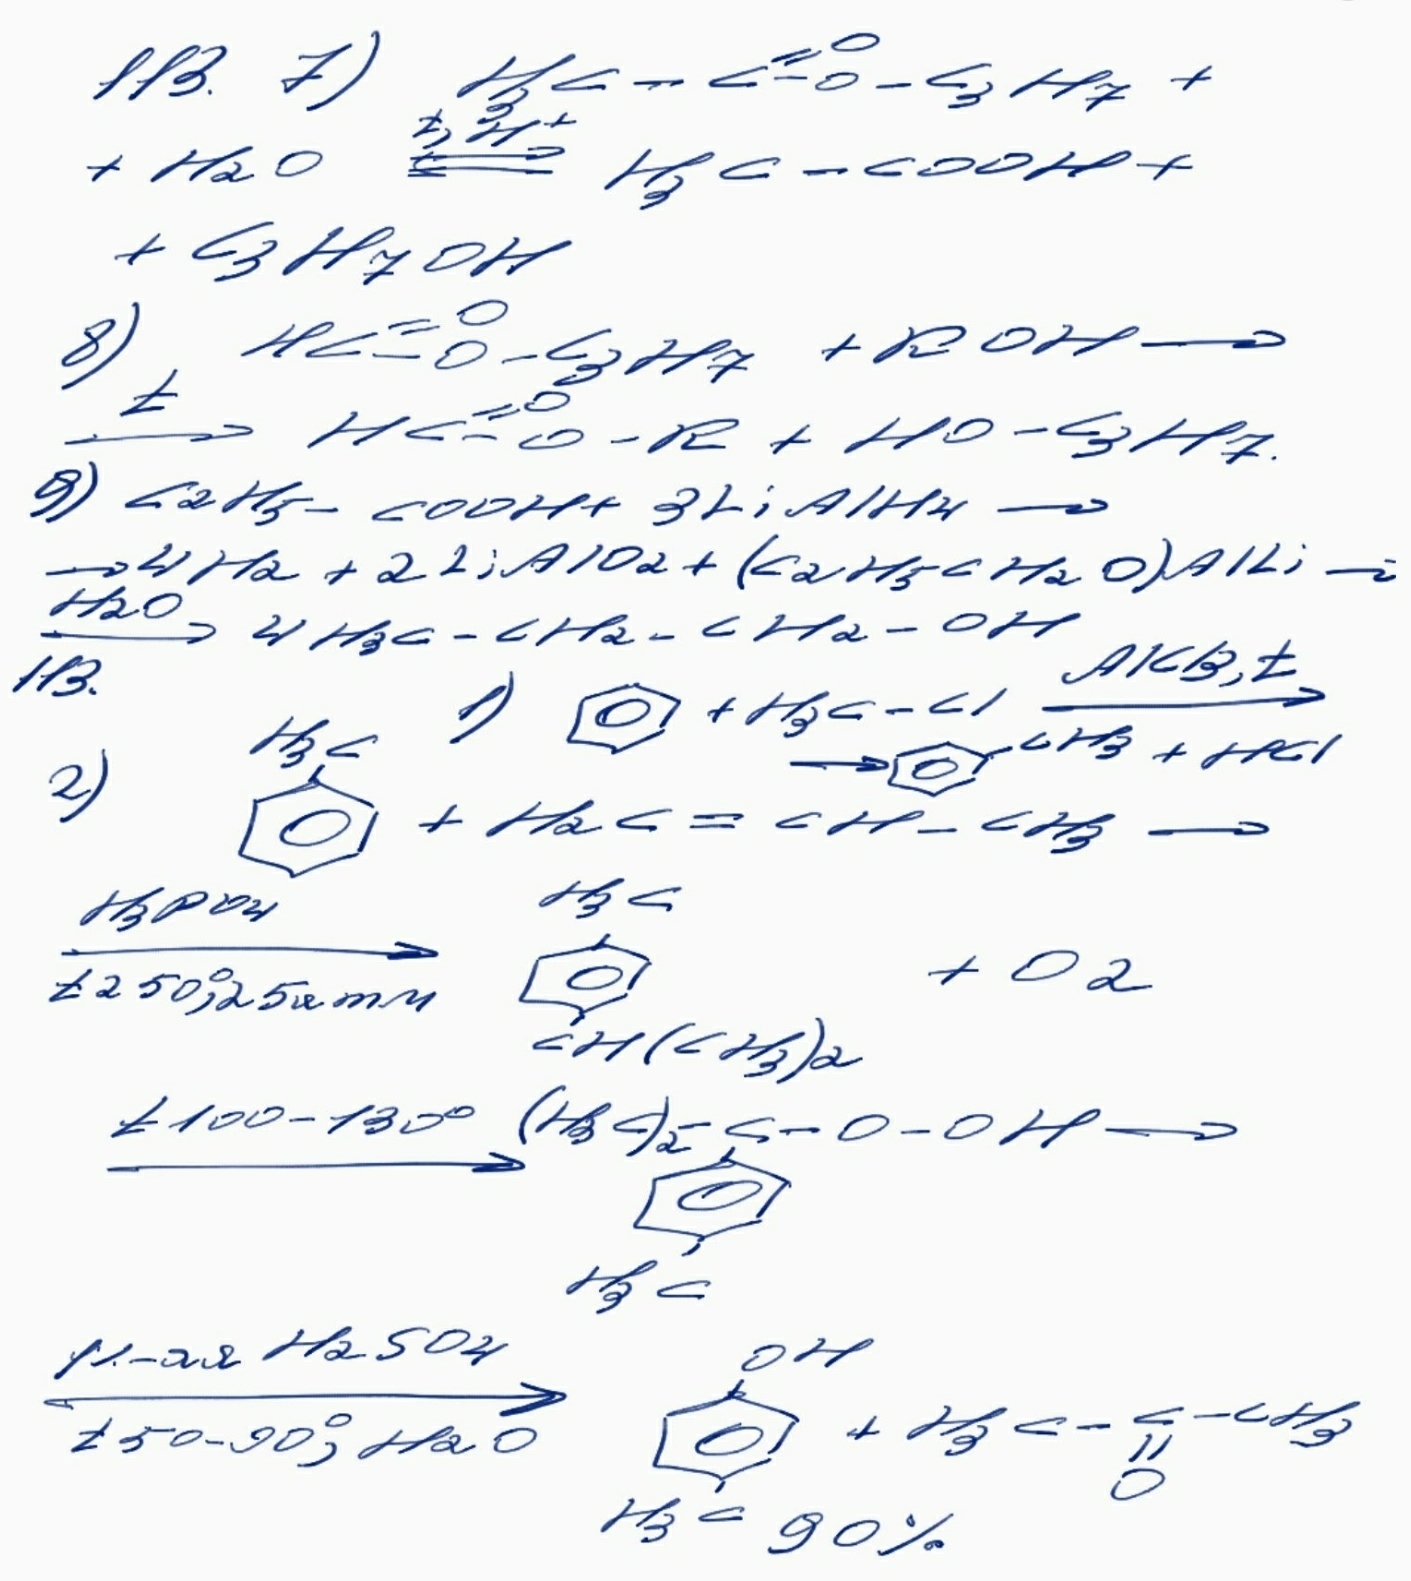 113. 7) H3C - C=O -O - C3H7 +
+ H2O t, H+ ⇌ H3C - COOH +
+ C3H7OH
8) HC=O -O - C3H7 + ROH →
t → HC=O -O - R + HO - C3H7.
9) C2H5 - COOH + 3LiAlH4 →
→ 4H2 + 2LiAlO2 + (C2H5CH2O)AlLi →
H2O → 4H3C - CH2 - CH2 - OH
113. 1) + H3C - Cl AlCl3, t →
→ CH3 + HCl
2) H3C + H2C = CH - CH3 →
H3PO4 → t 250°, 25 атм
H3C CH(CH3)2 + O2
t 100-130° → (H3C)2 - C - O - OH →
H3C
H2SO4 → t 50-90°, H2O
OH H3C + H3C - C - CH3 = O
90%